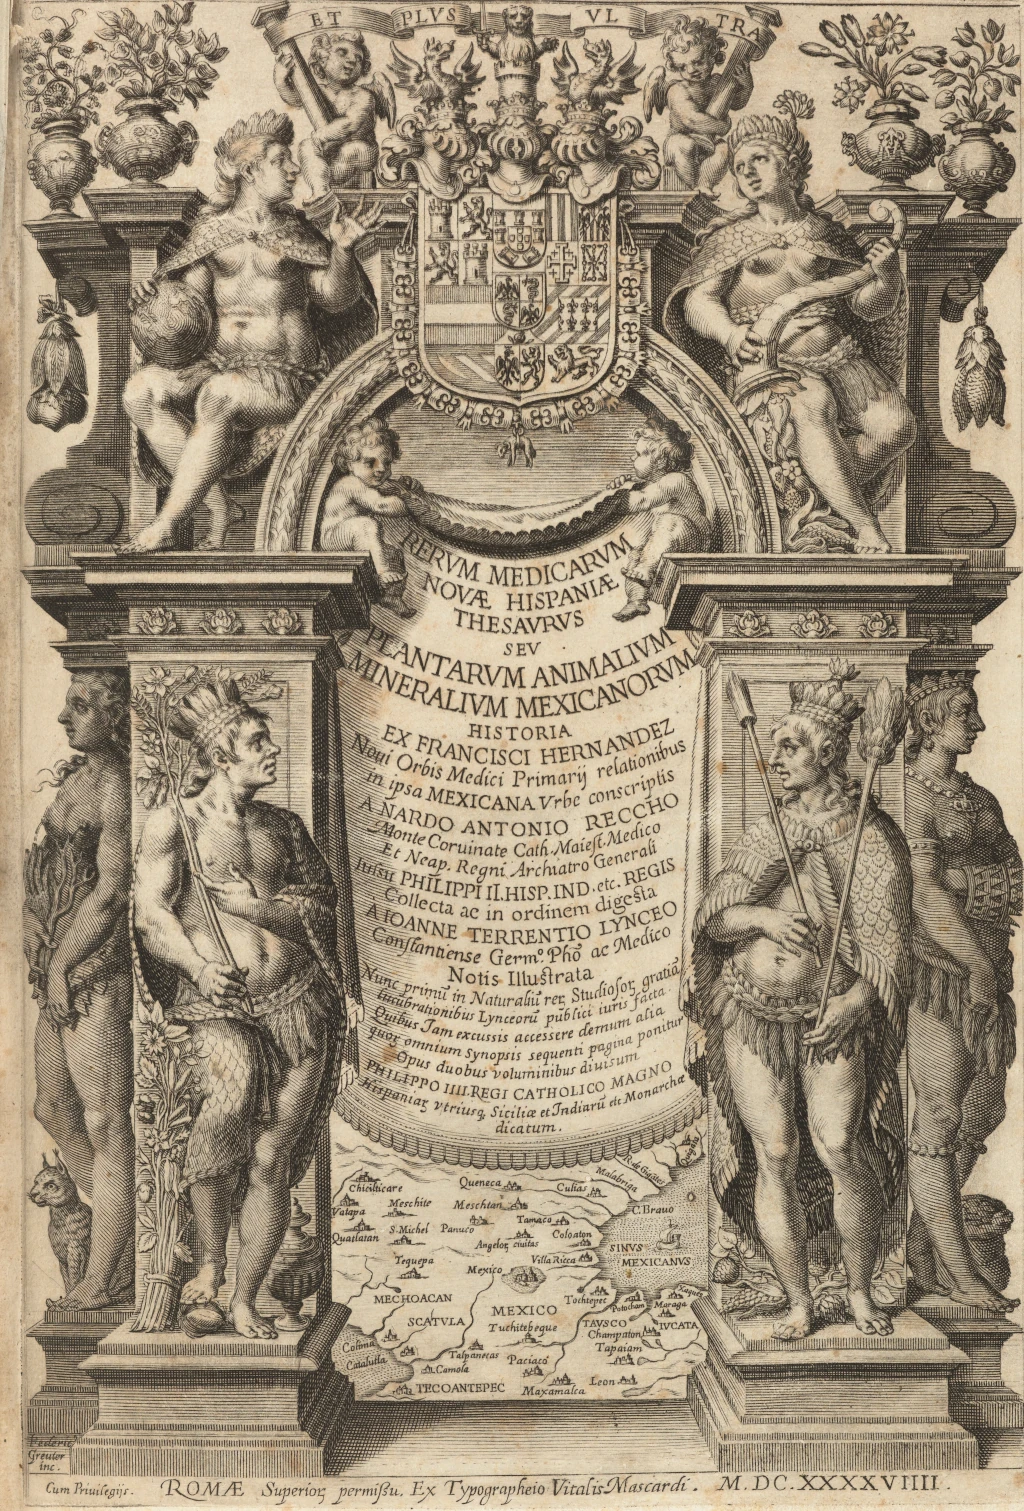 ET PLVS VLTRA
RERVM MEDICARVM
NOVÆ HISPANIÆ
THESAVRVS
SEV
PLANTARVM ANIMALIVM
MINERALIVM MEXICANORVM
HISTORIA
EX FRANCISCI HERNANDEZ
Noui Orbis Medici Primarij relationibus
in ipsa MEXICANA Vrbe conscriptis
A NARDO ANTONIO RECCHO
Monte Coruinate Cath. Maiest. Medico
Et Neap. Regni Archiatro Generali
Iussu PHILIPPI II. HISP. IND. etc. REGIS
Collecta ac in ordinem digesta
A IOANNE TERRENTIO LYNCEO
Constantiense Germ.º Phõ ac Medico
Notis Illustrata
Nunc primũ in Naturaliũ reꝝ Studiosoꝝ gratiã
lucubrationibus Lynceorũ publici iuris facta
Quibus Jam excussis accessere demum alia
quoꝝ omnium Synopsis sequenti pagina ponitur
Opus duobus voluminibus diuisum
PHILIPPO IIII. REGI CATHOLICO MAGNO
Hispaniaꝝ vtriusq Siciliæ et Indiarũ etc Monarchæ
dicatum.
Chicilticare
Queneca
Culias
Malabriga
Vatapa
Meschite
Meschtan
C. Brauo
Quatlatan
S. Michel
Panuco
Tamaco
Coloaton
Angeloꝝ ciuitas
SINVS
MEXICANVS
Teguepa
Mexico
Villa Ricca
MECHOACAN
MEXICO
Tochtepec
Potocham
Maraga
SCATVLA
Tuchitebeque
TAVSCO
IVCATA
Champaton
Colima
Catalutla
Talpanecas
Paciaco
Tapaiam
Camola
TECOANTEPEC
Maxamalca
Leon
Federic
Greuter
inc.
Cum Priuilegijs. ROMÆ Superioꝝ permißu. Ex Typographeio Vitalis Mascardi. M.DC.XXXXVIIII.